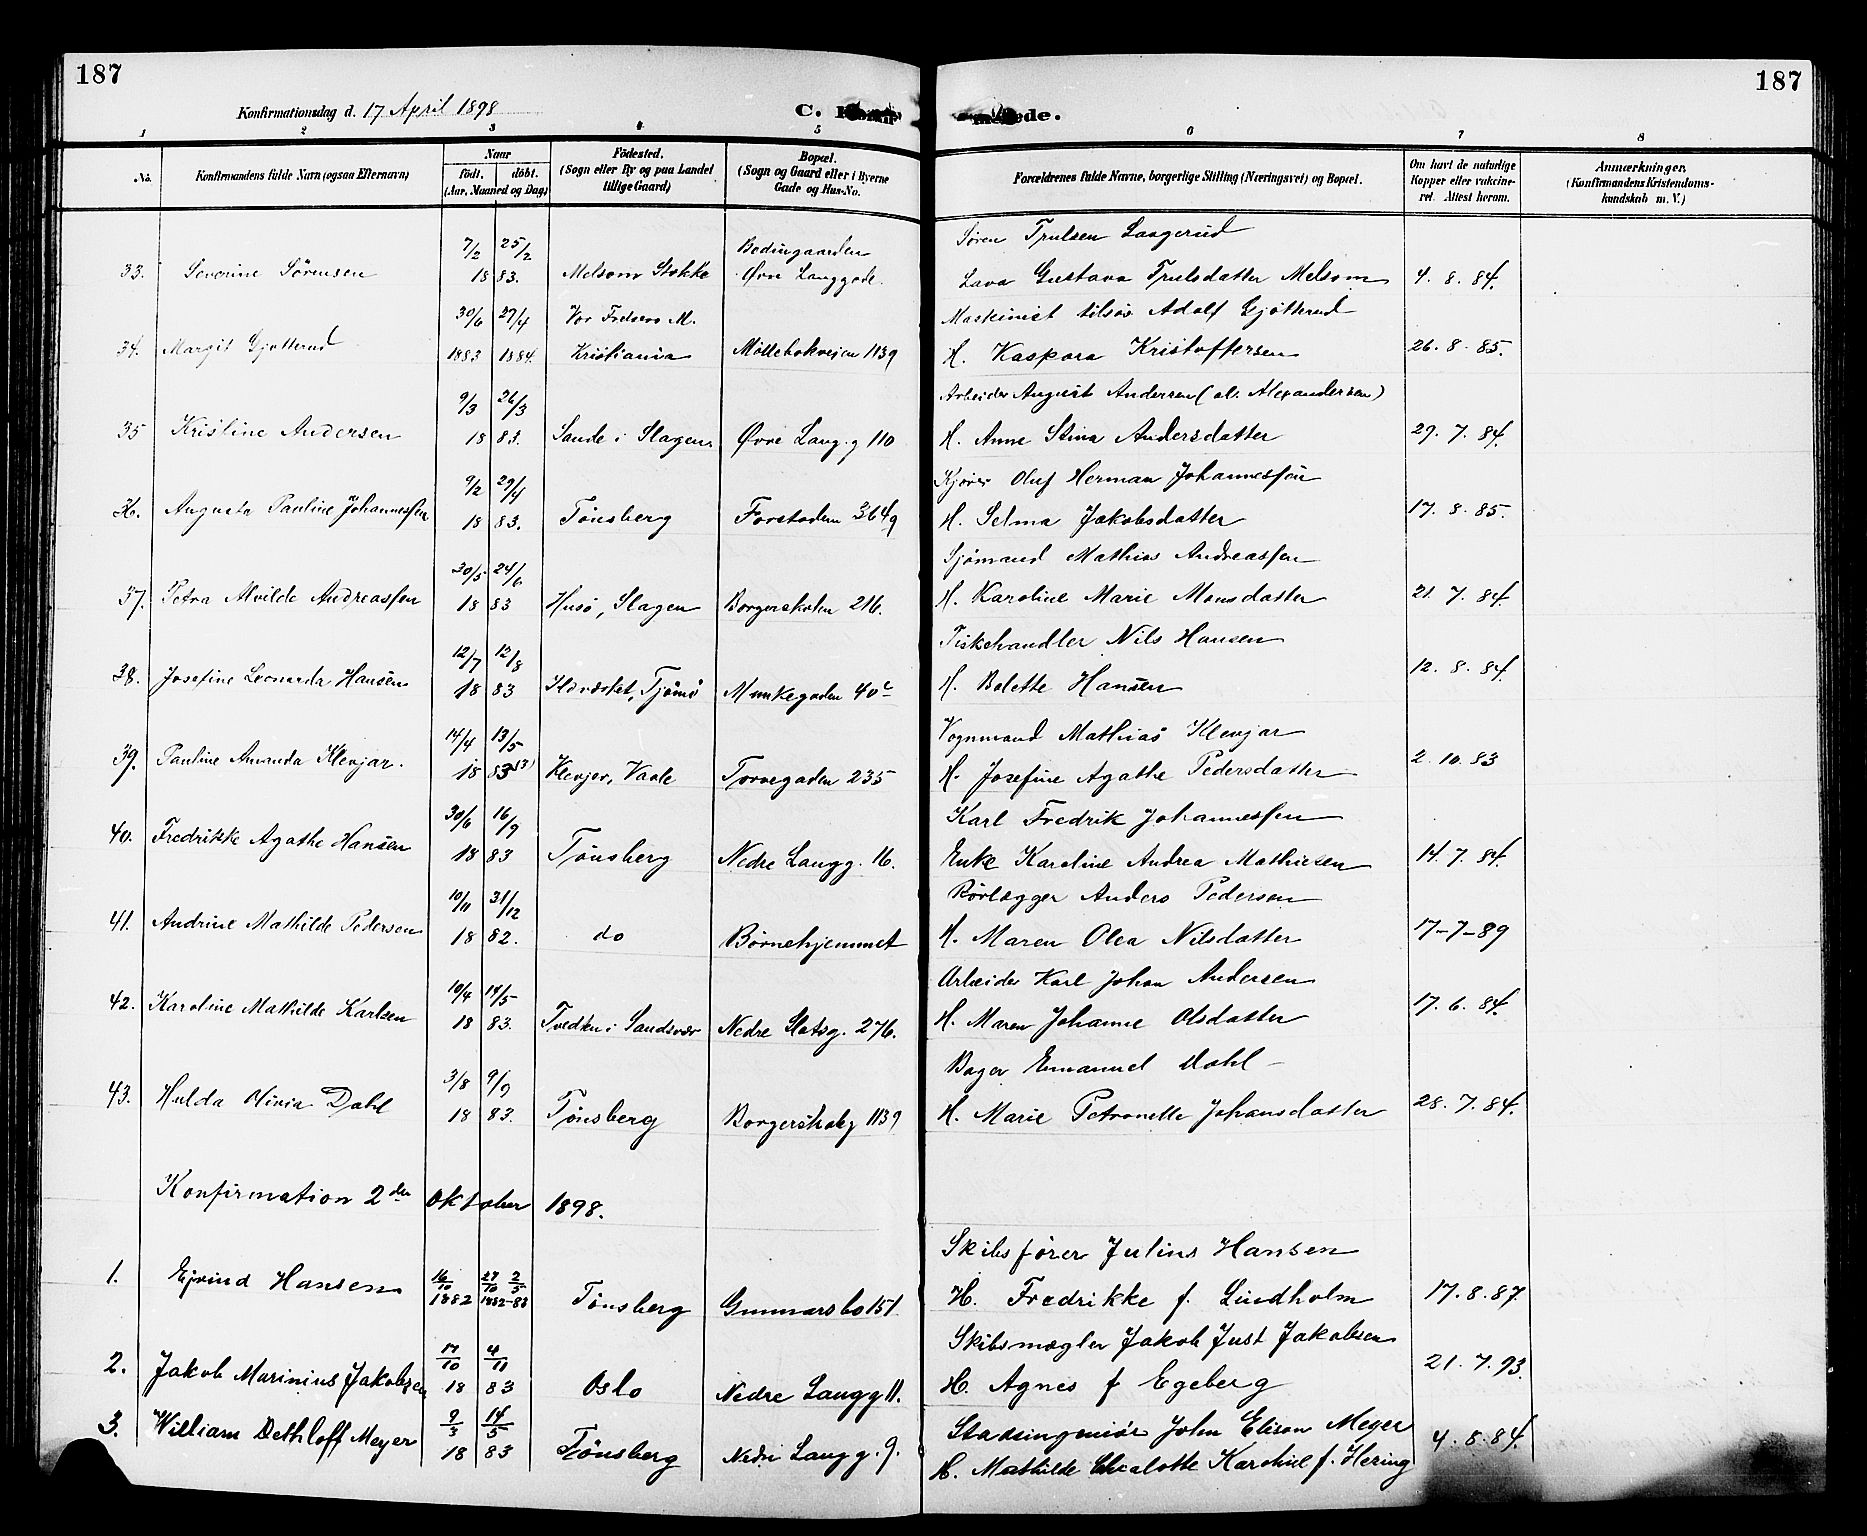 187
187
Konfirmationsdag d. 17 April 1898
C. ede.
1 2 3 4 5 6 7 8
No.
Konfirmandens fulde Navn (ogsaa Efternavn)
Naar
födt. döbt.
(Aar, Maaned og Dag)
Födested.
(Sogn eller By og paa Landet
tillige Gaard)
Bopæl.
(Sogn og Gaard eller i Byerne
Gade og Hus-No.
Forældrenes fulde Navne, borgerlige Stilling (Næringsvei) og Bopæl.
Om havt de naturlige
Kopper eller vakcine-
ret. Attest herom.
Anmærkninger.
(Konfirmandens Kristendoms-
kundskab m. V.)
7/2 25/2 Bødingaarden Søren Trulsen Laagerud
33. Severine Sörensen 18 83. Melsom Stokke Øvre Langgade. Lava Gustava Trulsdatter Melsom 4. 8. 84.
30/6 27/4 Vor Frelsers M. Maskinist Adolf Gjötterud
34. Margit Gjötterud 1883 1884 Kristiania Möllebakveien 113g H. Kaspara Kristoffersen 26. 8. 85.
9/3 26/3 Arbeider August Andersen (al. Alexandersen)
35 Kristine Andersen 18 83. Sande i Slagen Øvre Lang.g 110 H. Anne Stina Andersdatter 29. 7. 84.
9/2 29/4 Kjører Oluf Herman Johannessen
36. Augusta Pauline Johannessen 18 83. Tønsberg Forstaden 364g H. Selma Jakobsdatter 17. 8. 85.
30/5 24/6 Sjömand Mathias Andreassen
37. Petra Alvilde Andreassen 18 83 Husö, Slagen Borgerskolen 216. H. Karoline Marie Monsdatter 21. 7. 84.
12/7 12/8 Fiskehandler Nils Hansen
38. Josefine Leonarda Hansen 18 83 Tjömö Munkegaden 40c H. Bolette Hansen 12. 8. 84.
14/4 13/5 Vognmand Mathias Klevjar
39. Pauline Amanda Klevjar. 18 83 Klevjer, Vaale Torvegaden 235 H. Josefine Agathe Pedersdatter 2. 10. 83
30/6 16/9 Karl Fredrik Johannessen
40. Fredrikke Agathe Hansen 18 83 Tønsberg Nedre Langg. 16. Enke Karoline Andrea Mathiesen 14. 7. 84.
10/11 31/12 Rörlægger Anders Pedersen
41. Andrine Mathilde Pedersen 18 82. do Börnehjemmet H. Maren Olea Nilsdatter 17-7-89
10/4 14/5 Arbeider Karl Johan Andersen
42. Karoline Mathilde Karlsen 18 83. Tvedten i Sandsvær Nedre Slotsg. 276. H. Maren Johanne Olsdatter 17. 6. 84.
3/8 9/9 Bager Emanuel Dahl
43. Hulda Olivia Dahl 18 83. Tønsberg Borgerskoleg 1139 H. Marie Petronelle Johansdatter 28. 7. 84.
Konfirmation 2den Oktober 1898.
Skibsfører Julius Hansen
1. Ejvind Hansen 16/10 1882 27/10 2/5 1882-83 Tønsberg Gunnarsbo 151. H. Fredrikke f. Lindholm 17. 8. 87.
Skibsmægler Jakob Just Jakobsen
2. Jakob Marinius Jakobsen 17/10 4/11 18 83 Oslo Nedre Langg 11. H. Agnes f Egeberg 21. 7. 93.
3. William Dethloff Meyer 9/3 14/5 18 83 Tønsberg Nedre Langg. 9. Stadsingeniör John Elison Meyer 4. 8. 84.
H. Mathilde Charlotte Karoline f. Hering